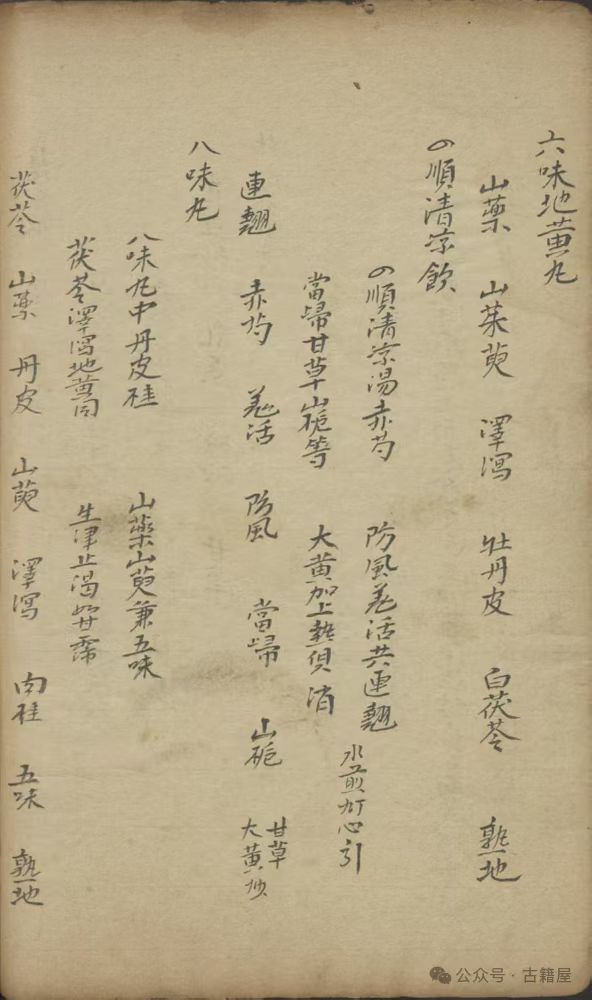 六味地黄丸
山藥 山茱萸 澤瀉 牡丹皮 白茯苓 熟地
四順清凉飲
四順清凉湯赤芍 防風羗活共連翹
當歸甘草山栀等 大黄加上熱俱消
水煎灯心引
連翹 赤芍 羗活 防風 當歸 山栀 甘草 大黄炒
八味丸
八味丸中丹皮桂 山藥山萸兼五味
茯苓澤瀉地黄同 生津止渴如甘露
茯苓 山藥 丹皮 山萸 澤瀉 肉桂 五味 熟地
公众号·古籍屋